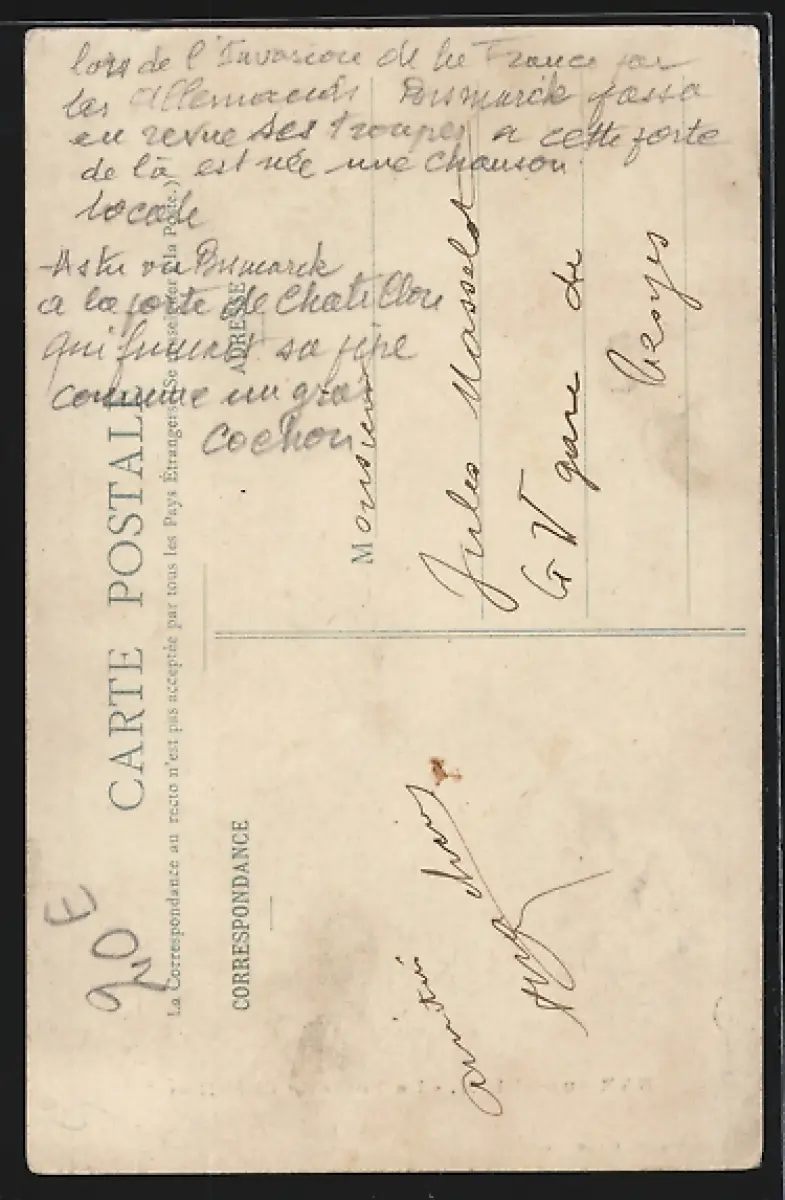 lors de l'Invasion de la France par
les Allemands Bismarck passa
en revue ses troupes a cette porte
de là est née une chanson
locale
As tu vu Bismarck
a la porte de Chatillon
qui fumait sa pipe
comme un gros
cochon
CARTE POSTALE
La Correspondance au recto n'est pas acceptée par tous les Pays Étrangers (Se renseigner à la Poste.)
ADRESSE
Monsieur
Jules Masselot
GV gare de
CORRESPONDANCE
amitiés
2,0 E